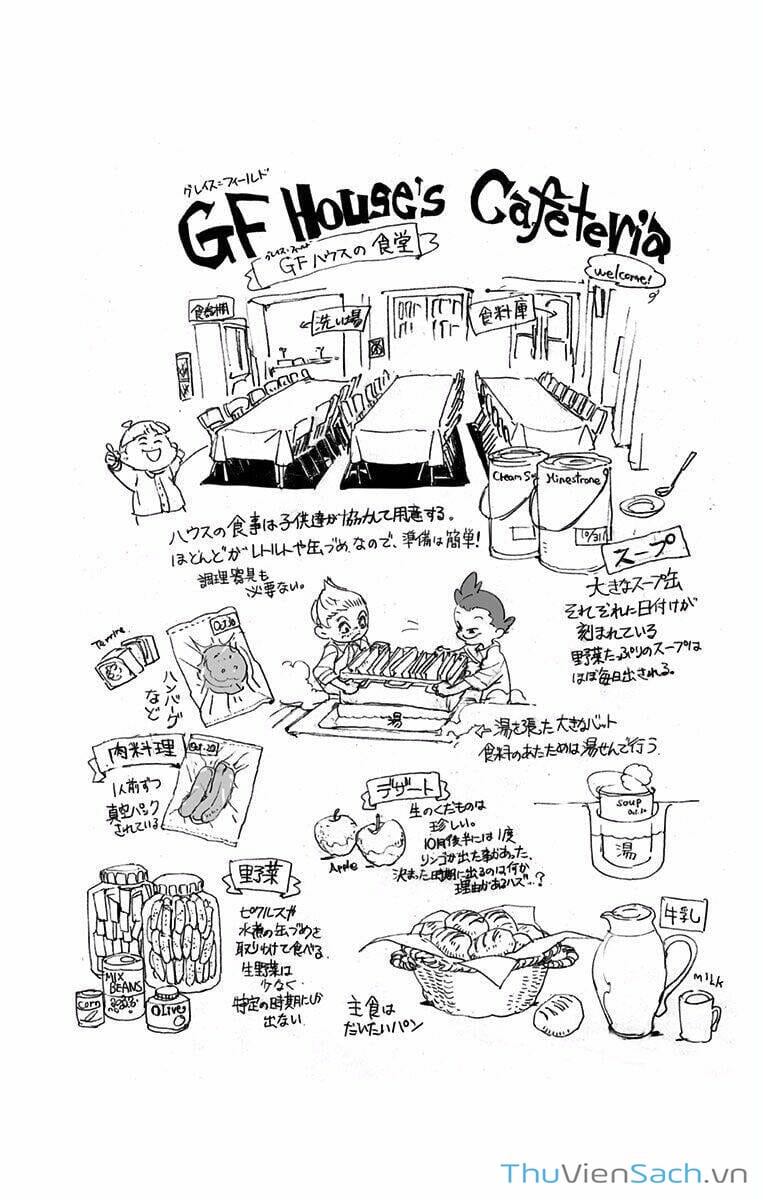 グレイス=フィールド
GF House's Cafeteria
グレイス=フィールド
GFハウスの食堂
welcome!
食器棚
←洗い場
食料庫
Minestrone
10/31
ハウスの食事は子供達が協力して用意する。
ほとんどがレトルトや缶づめなので、準備は簡単!
調理器具も
必要ない。
スープ
大きなスープ缶
それぞれに日付けが
刻まれている
野菜たっぷりのスープは
ほぼ毎日出される。
Terrine
Oct.20
ハンバーグ
など
湯
←湯を張った大きなバット
食料のあたためは湯せんで行う
肉料理
1人前ずつ
真空パック
されている
Oct.20
デザート
生のくだものは
珍しい。
10月後半には1度
リンゴが出た事があった、
決まった時期に出るのは何か
理由があるハズ…?
Apple
soup
Oct.20
湯
野菜
ピクルスや
水煮の缶づめを
取りわけて食べる
生野菜は
少なく
特定の時期にしか
出ない
corn
MIX
BEANS
Olives
主食は
だいたいパン
牛乳
MILK
ThuVienSach.vn